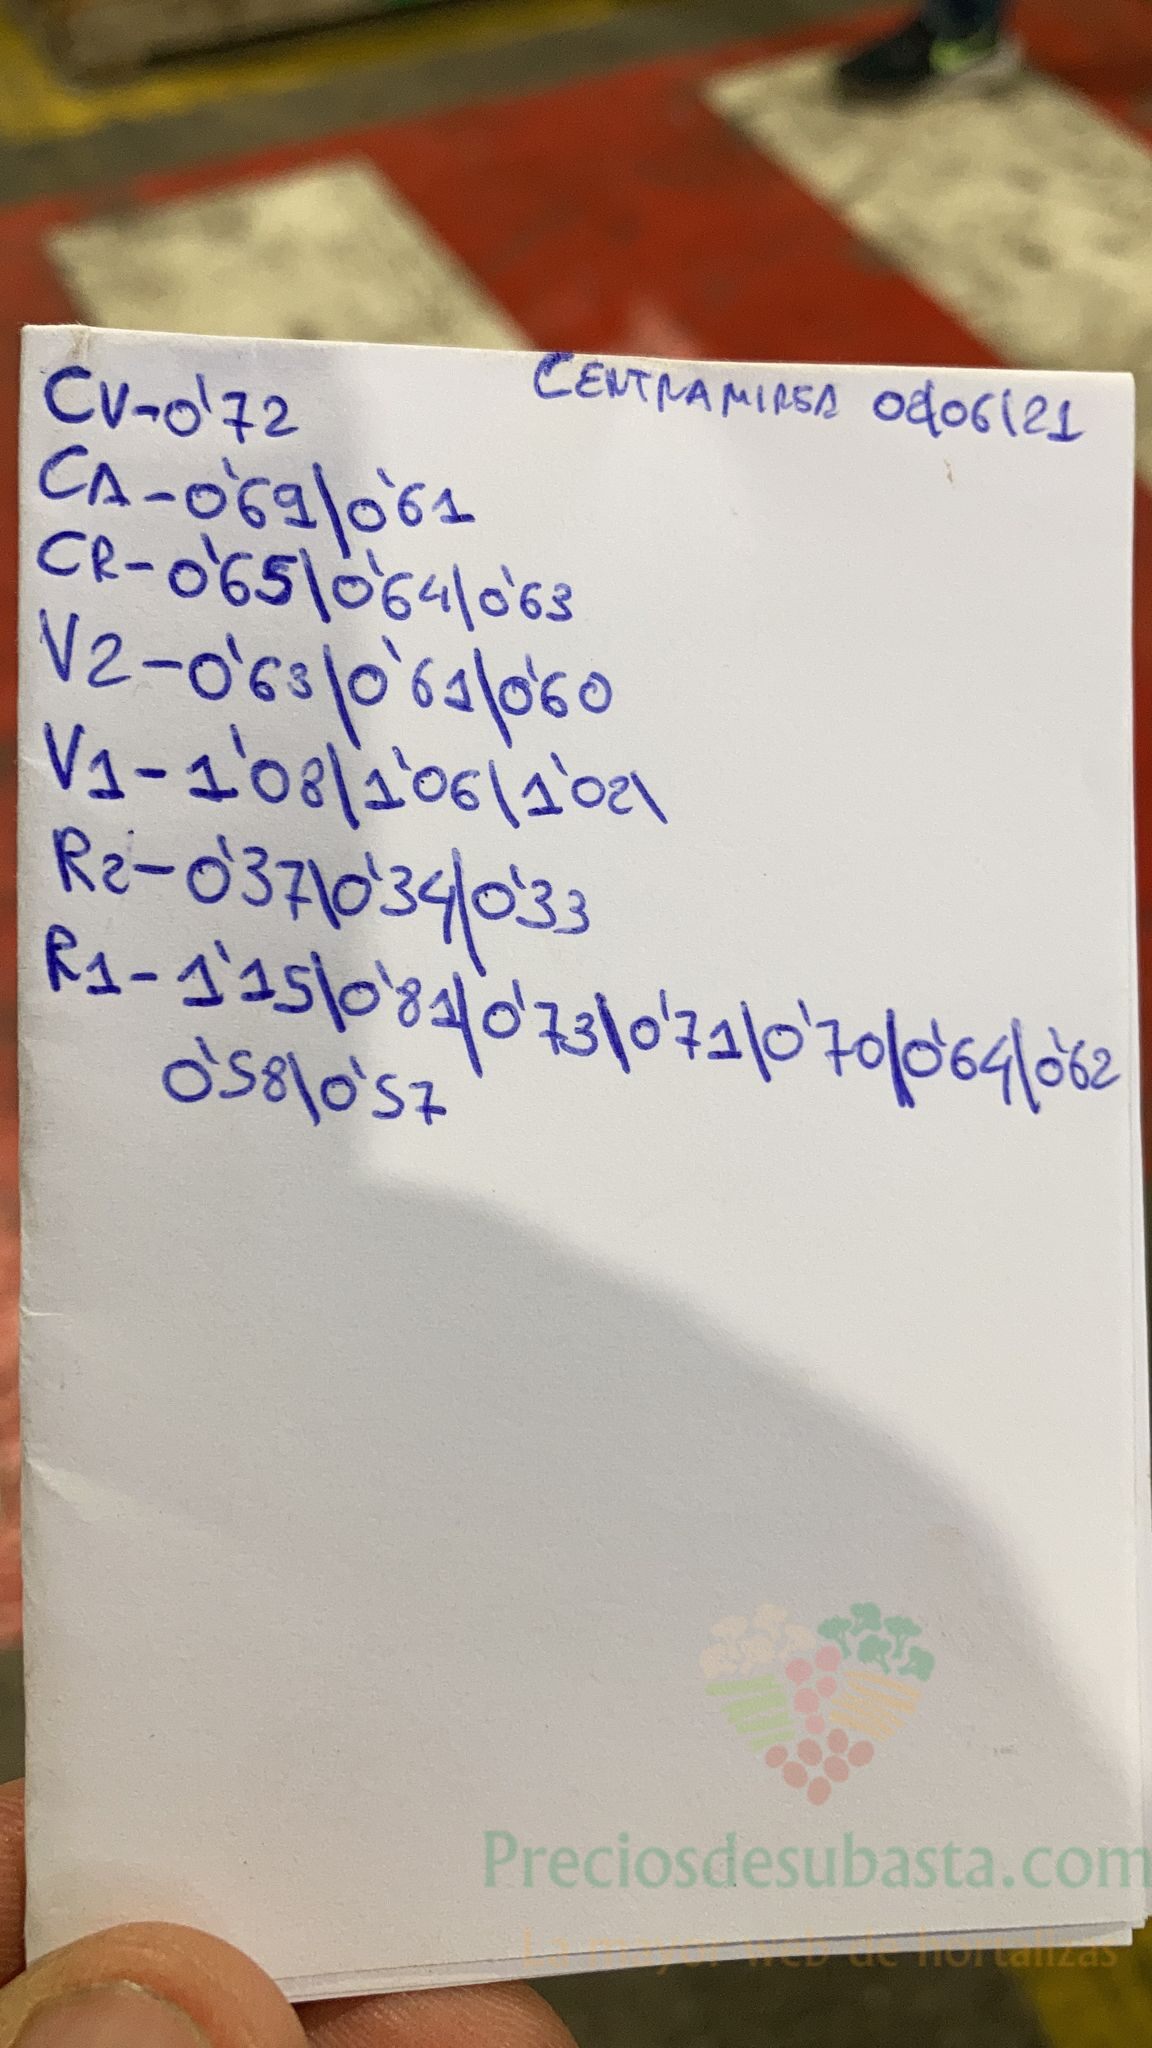 CENTRAMIRSA 08/06/21
CV-0'72
CA-0'69/0'61
CR-0'65/0'64/0'63
V2-0'63/0'61/0'60
V1-1'08/1'06/1'02\
R2-0'37/0'34/0'33
R1-1'15/0'81/0'73/0'71/0'70/0'64/0'62
0'58/0'57
Preciosdesubasta.com
La mayor web de hortalizas